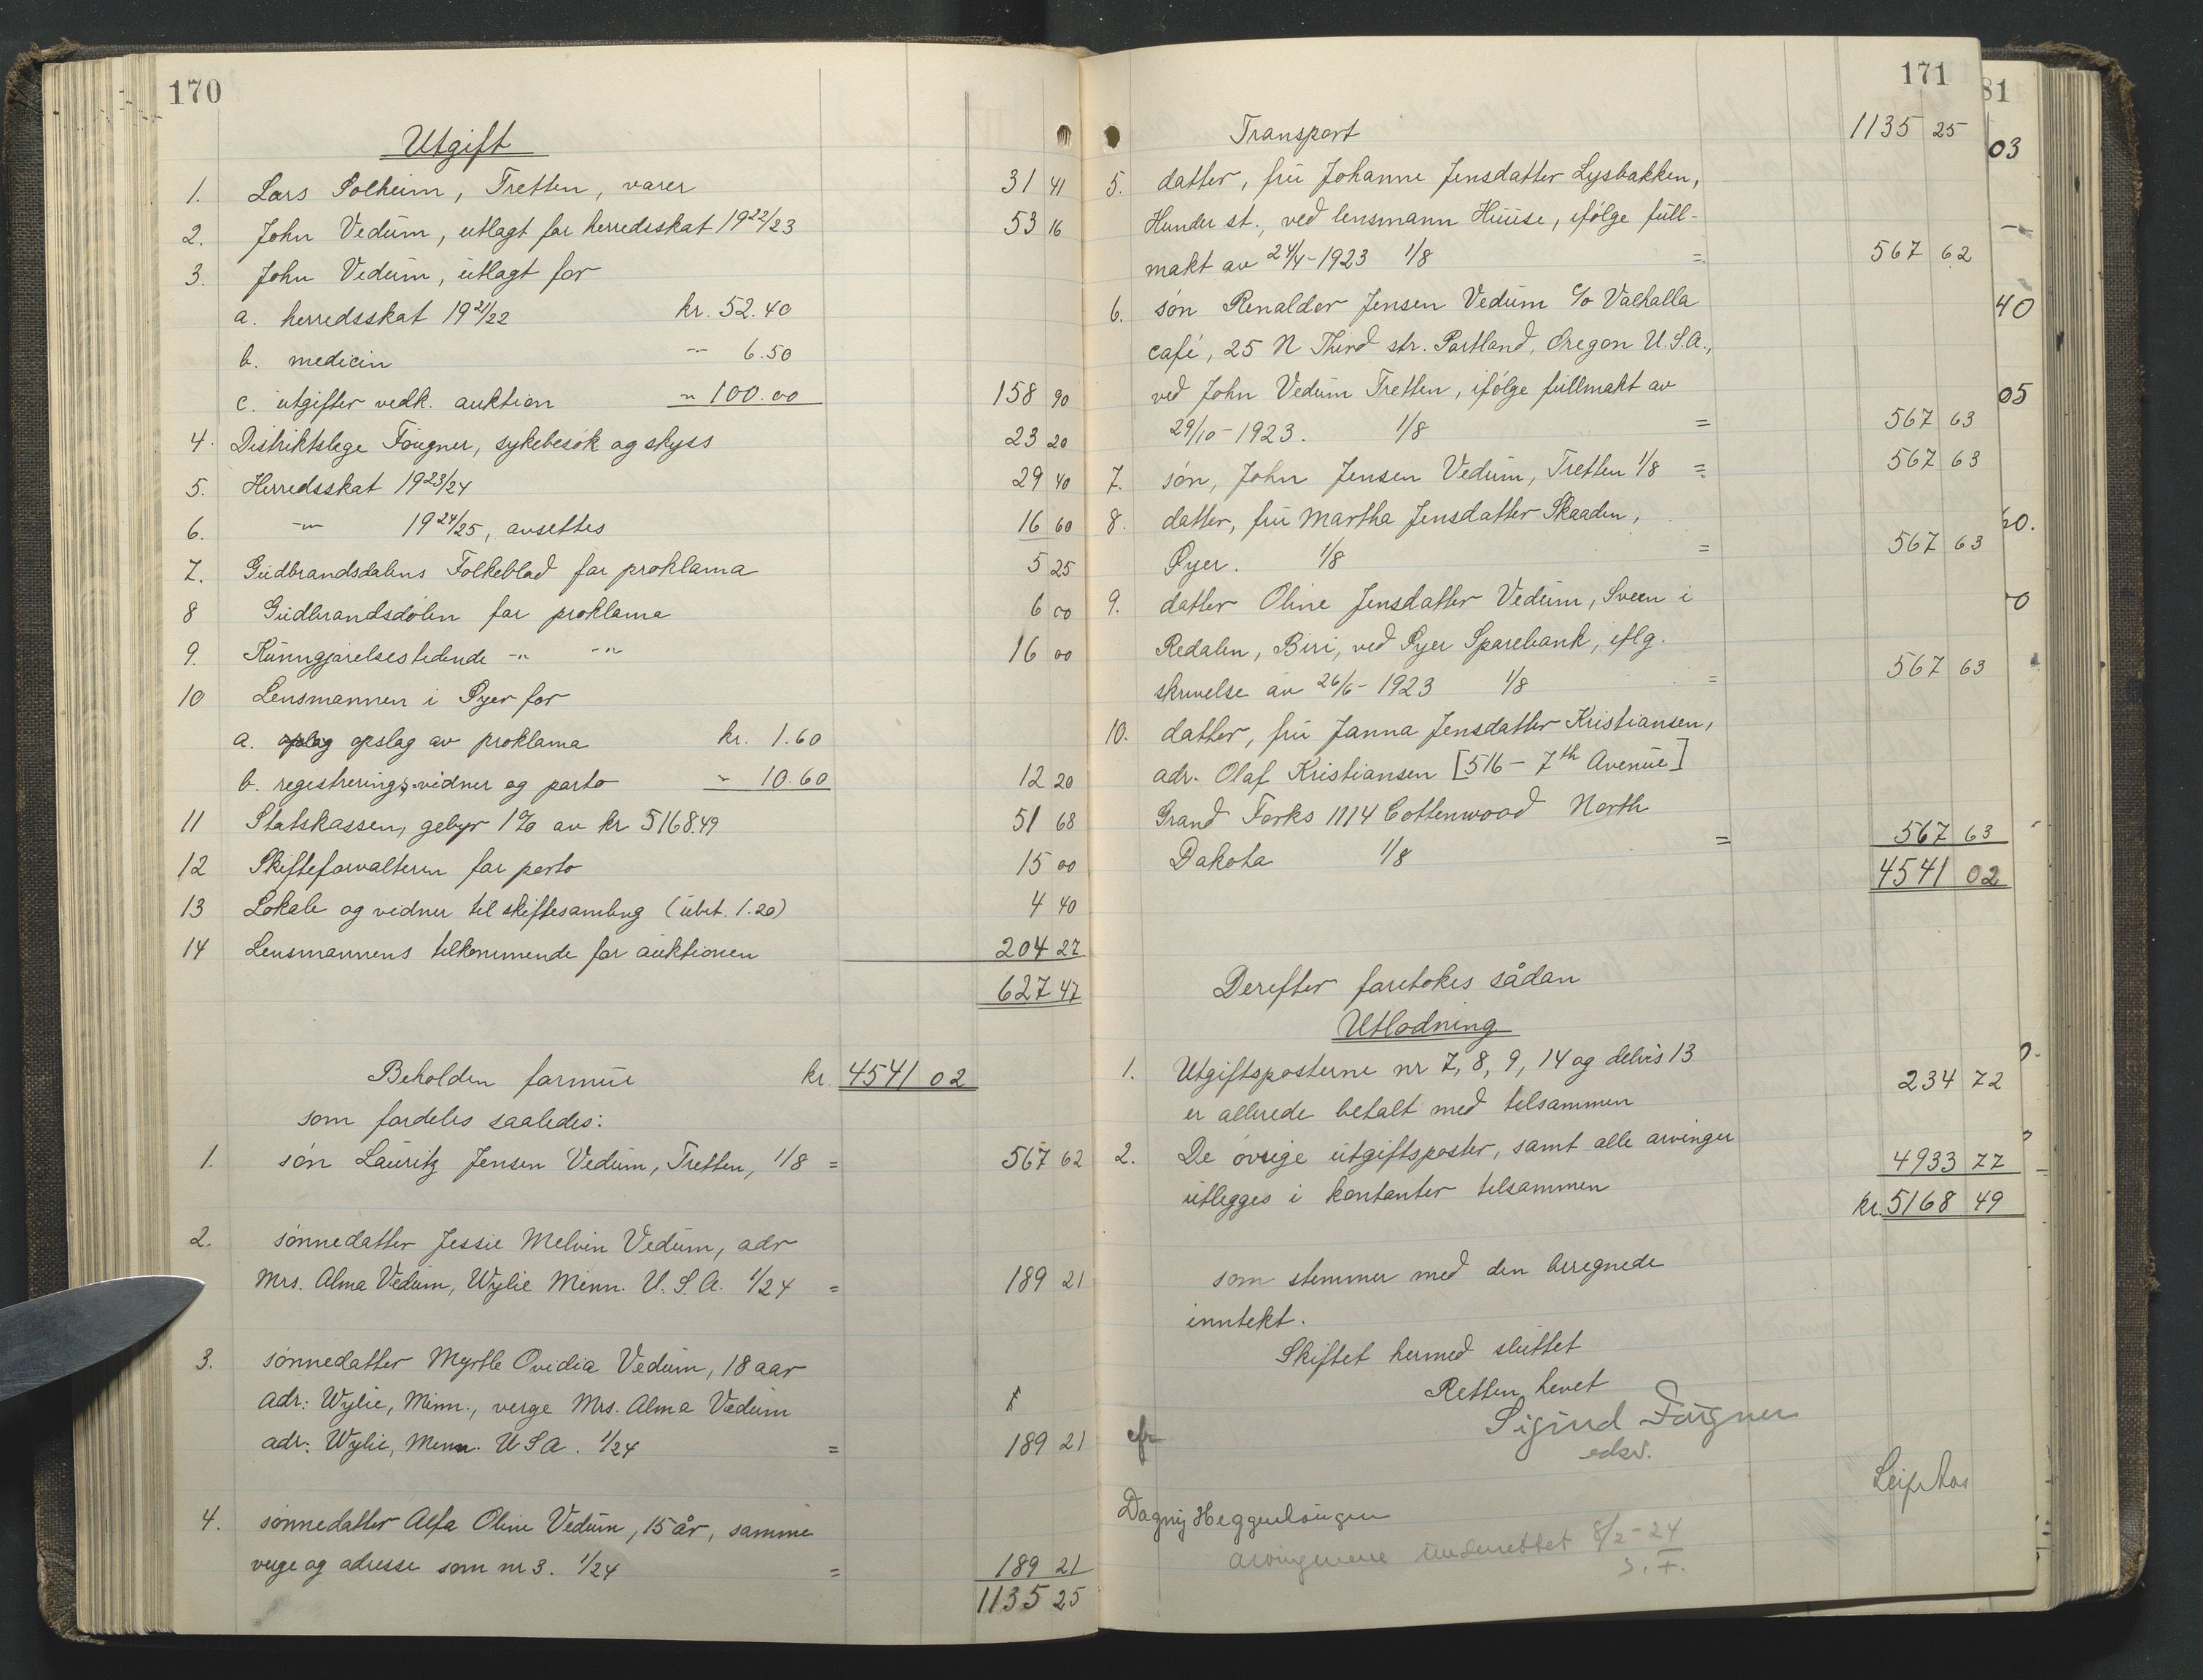 170
Utgift
1. Lars Solheim, Tretten, varer 31 41
2. John Vedum, utlagt for herredsskat 1922/23 53 16
3. John Vedum, utlagt for
a. herredsskat 1921/22 kr. 52.40
b. medicin -"- 6.50
c. utgifter vedk. auktion " 100.00 158 90
4. Distriktslege Fougner, sykebesøk og skyss 23 20
5. Herredsskat 1923/24 29 40
6. -"- 1924/25, avsettes 16 60
7. Gudbrandsdalens Folkeblad for proklama 5 25
8 Gudbrandsdølen for proklama 6 00
9. Kunngjørelsestidende -"- -"- 16 00
10 Lensmannen i Øyer for
a. opslag opslag av proklama kr. 1.60
b. registrering, vidner og porto " 10.60 12 20
11 Statskassen, gebyr 1% av kr 5168.49 51 68
12 Skifteforvalteren for porto 15 00
13 Lokale og vidner til skiftesamling (ubet. 1.20) 4 40
14 Lensmannens tilkommende for auktionen 204 27
627 47
Beholden formue kr. 4541 02
som fordeles saaledes:
1. søn Lauritz Jensen Vedum, Tretten, 1/8 = 567 62
2. sønnedatter Jessie Melvin Vedum, adr
Mrs. Alma Vedum, Wylie Minn. U.S.A. 1/24 = 189 21
3. sønnedatter Myrtle Ovidia Vedum, 18 aar
adr: Wylie, Minn., verge Mrs. Alma Vedum
adr: Wylie, Minn. USA. 1/24 = 189 21
4. sønnedatter Alfa Oline Vedum, 15 år, samme
verge og adresse som nr 3. 1/24 = 189 21
1135 25
171
Transport 1135 25
5. datter, fru Johanne Jensdatter Lysbakken,
Hunder st., ved lensmann Huuse, ifølge full-
makt av 24/4-1923 1/8 = 567 62
6. søn Renalder Jensen Vedum c/o Valhalla
café, 25 N Third str. Portland, Oregon U.S.A.,
ved John Vedum Tretten, ifølge fullmakt av
29/10-1923. 1/8 = 567 63
7. søn, John Jensen Vedum, Tretten 1/8 = 567 63
8. datter, fru Martha Jensdatter Skaaden,
Øyer. 1/8 = 567 63
9. datter Oline Jensdatter Vedum, Sveen i
Redalen, Biri, ved Øyer Sparebank, iflg.
skrivelse av 26/6-1923 1/8 = 567 63
10. datter, fru Janna Jensdatter Kristiansen,
adr. Olaf Kristiansen [516 - 7th Avenue]
Grand Forks 1114 Cottenwood North
Dakota 1/8 = 567 63
4541 02
Derefter foretokes sådan
Utlodning
1. Utgiftsposterne nr 7, 8, 9, 14 og delvis 13
er allerede betalt med tilsammen 234 72
2. De øvrige utgiftsposter, samt alle arvinger
utlegges i kontanter tilsammen 4933 77
kr. 5168 49
som stemmer med den beregnede
inntekt.
Skiftet hermed sluttet
Retten hevet
Sigurd Fougner
edsv.
cfr
Leif Aas
Dagny Heggenhougen
arvingene underrettet 8/2-24
S.F.
81
03
40
05